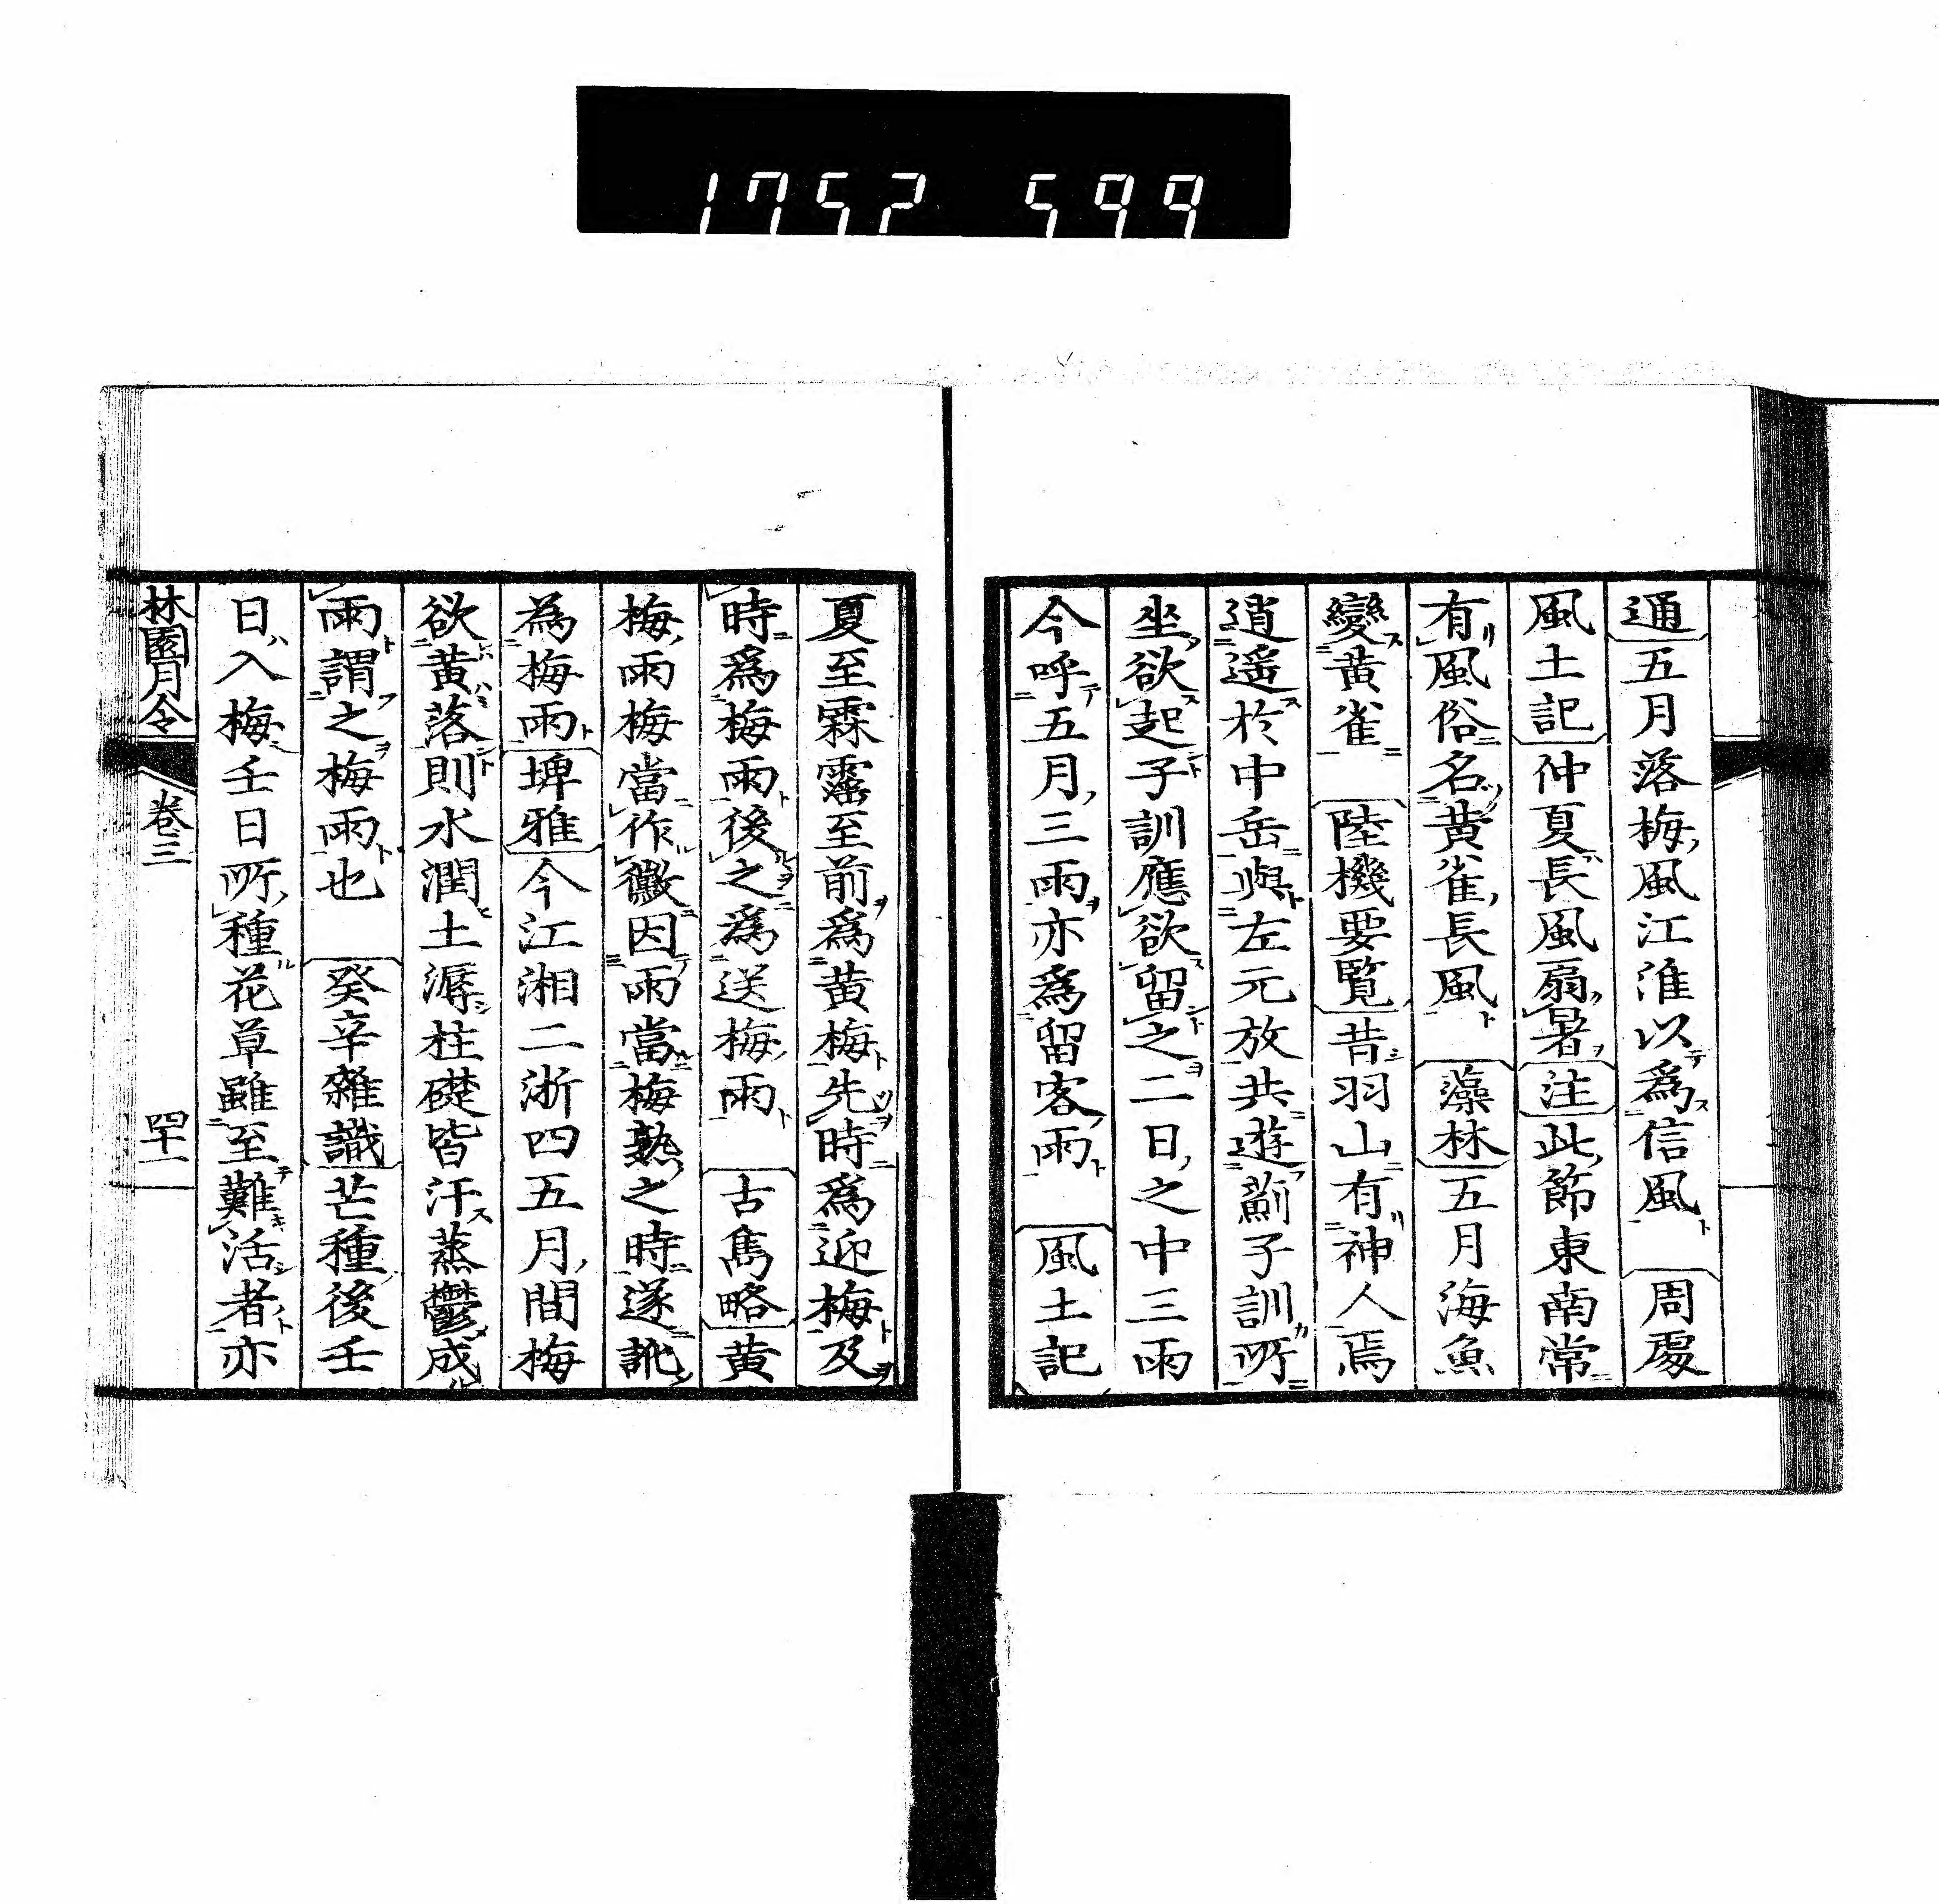 1752 599
通五月落梅風江淮以爲信風 周處
風土記仲夏長風扇暑注此節東南常
有風俗名黄雀長風 藻林五月海魚
變黄雀 陸機要覧昔羽山有神人焉
逍遥於中岳與左元放共遊薊子訓所
坐欲起子訓應欲留之二日之中三雨
今呼五月三雨亦爲留客雨 風土記
夏至霖霪至前爲黄梅先時爲迎梅及
時爲梅雨後之爲送梅雨 古雋略黄
梅雨梅當作黴因雨當梅熟之時遂訛
為梅雨埤雅今江湘二浙四五月間梅
欲黄落則水潤土溽柱礎皆汗蒸鬱成
雨謂之梅雨也 癸辛雜識芒種後壬
日入梅壬日所種花草雖至難活者亦
林園月令 卷三 四十一